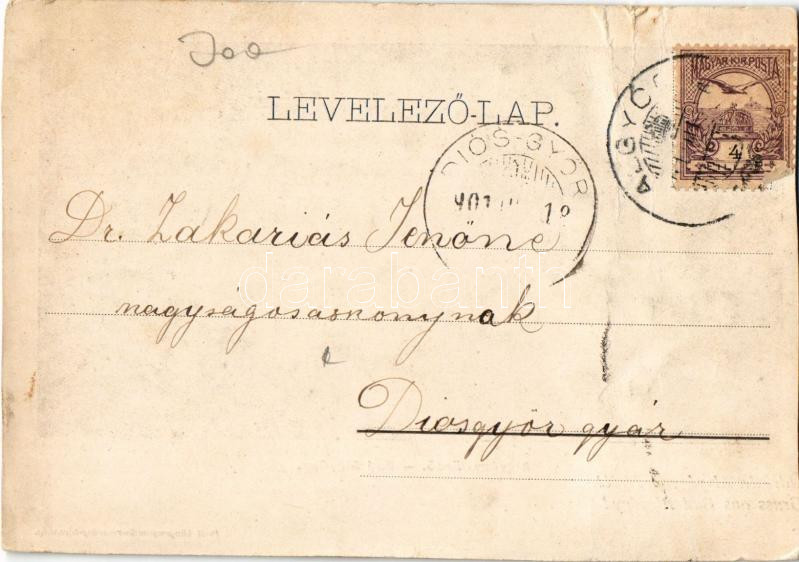 Joo
LEVELEZŐ-LAP.
MAGYAR KIR. POSTA
4
ALGYŐ
DIÓS-GYŐR
901
Dr. Zakariás Jenőné
nagyságosasszonynak
Diósgyőr gyár
darabanth